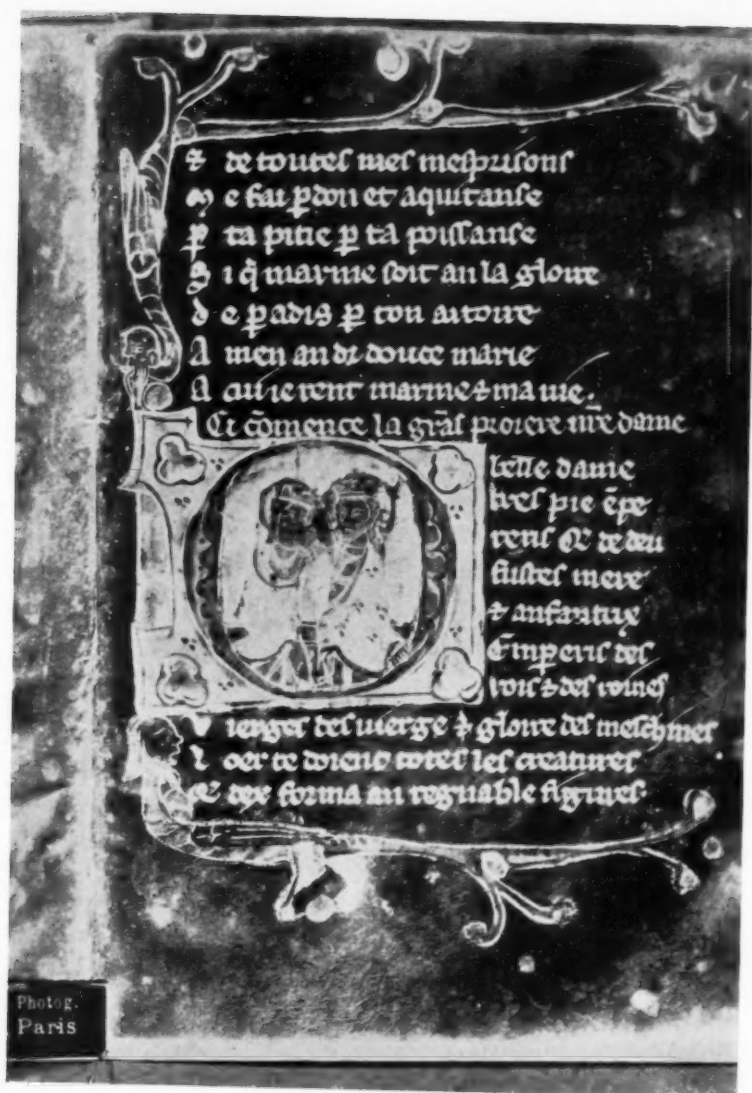 & de toutes mes mesprisons
M e fai ꝑdon et aquitanse
P ta pitie ꝑ ta poissanse
S i q̃ marme soit an la gloire
d e ꝑadis ꝑ ton aitoire
A men an di douce marie
A cui ie rent marme & ma uie.
Ci cõmence la grãt proiere nr̃e dame
O belle dame
tres pie ẽpe
rens de deu
fustes mere
& anfantix
Emꝑeris des
rois & des roines
V ierges des uierge & gloire des meschines
L oer te doient totes les creatures
dex forma an regnable figures.
Photog.
Paris